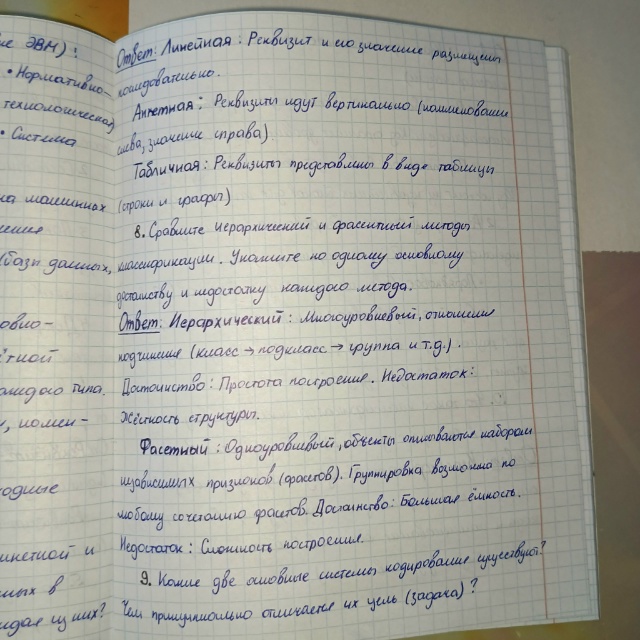 ие ЭВМ):
• Нормативно-
технологическая
• Система
на машинных
(базы данных,
ётной
каждого типа.
и, номен-
одные
анкетной и
ных в
каждая из них?
Ответ: Линейная: Реквизит и его значение размещены
последовательно.
Анкетная: Реквизиты идут вертикально (наименование
слева, значение справа).
Табличная: Реквизиты представлены в виде таблицы
(строки и графы)
8. Сравните иерархический и фасетный методы
классификации. Укажите по одному основному
достоинству и недостатку каждого метода.
Ответ: Иерархический: Многоуровневый, отношение
подчинения (класс → подкласс → группа и т.д.).
Достоинство: Простота построения. Недостаток:
Жёсткость структуры.
Фасетный: Одноуровневый, объекты описываются набором
независимых признаков (фасетов). Группировка возможна по
любому сочетанию фасетов. Достоинство: Большая ёмкость.
Недостаток: Сложность построения.
9. Какие две основные системы кодирования существуют?
Чем принципиально отличается их цель (задача)?